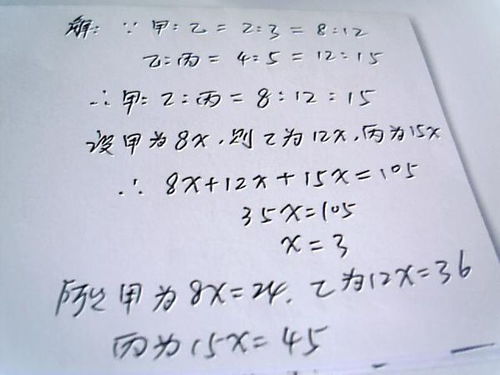 解: ∵ 甲:乙 = 2:3 = 8:12
乙:丙 = 4:5 = 12:15
∴ 甲:乙:丙 = 8:12:15
设甲为8x,则乙为12x,丙为15x
∴ 8x+12x+15x=105
35x=105
x=3
所以甲为8x=24,乙为12x=36
丙为15x=45